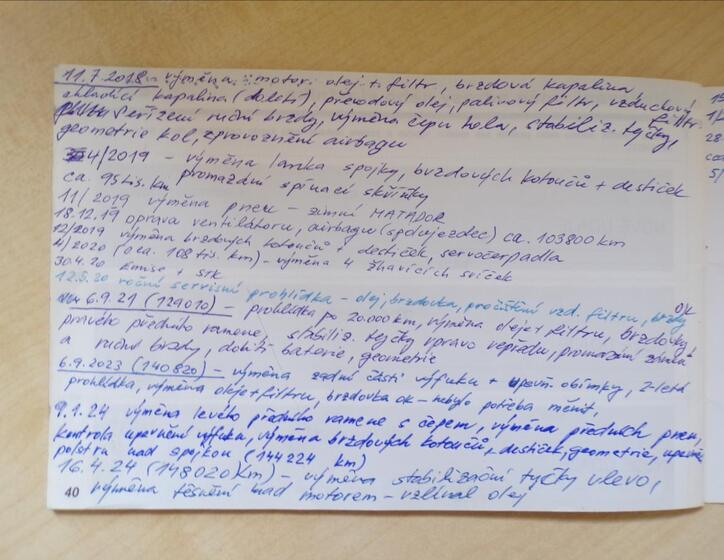 11.7.2018 - výměna motor. olej + filtr, brzdová kapalina,
chladící kapalina (dolití), převodový olej, palivový filtr, vzduchový filtr
seřízení ruční brzdy, výměna čepu kola, stabiliz. tyčky,
geometrie kol, zprovoznění airbagu
4/2019 - výměna lanka spojky, brzdových kotoučů + destiček
ca. 95 tis. km promazání spínací skříňky
11/2019 výměna pneu - zimní MATADOR
18.12.19 oprava ventilátoru, airbagu (spolujezdec) ca. 103800 km
12/2019 výměna brzdových kotoučů a destiček, servočerpadla
4/2020 (cca. 108 tis. km) - výměna 4 žhavících svíček
30.4.20 emise + STK
12.5.20 roční servisní prohlídka - olej, brzdovka, pročištění vzd. filtru, brzdy OK
6.9.21 (129010) - prohlídka po 20.000 km, výměna oleje + filtru, brzdovky,
pravého předního ramene, stabiliz. tyčky vpravo vepředu, promazání
a ruční brzdy, dobití baterie, geometrie
6.9.2023 (140820) - výměna zadní části výfuku + upevň. objímky, 2-letá
prohlídka, výměna oleje + filtru, brzdovka ok - nebylo potřeba měnit,
9.1.24 výměna levého předního ramene s čepem, výměna předních pneu,
kontrola upevnění výfuku, výměna brzdových kotoučů, destiček, geometrie,
polstru nad spojkou (144224 km)
16.4.24 (148020 km) - výměna stabilizační tyčky vlevo,
výměna těsnění nad motorem - vzlínal olej
40